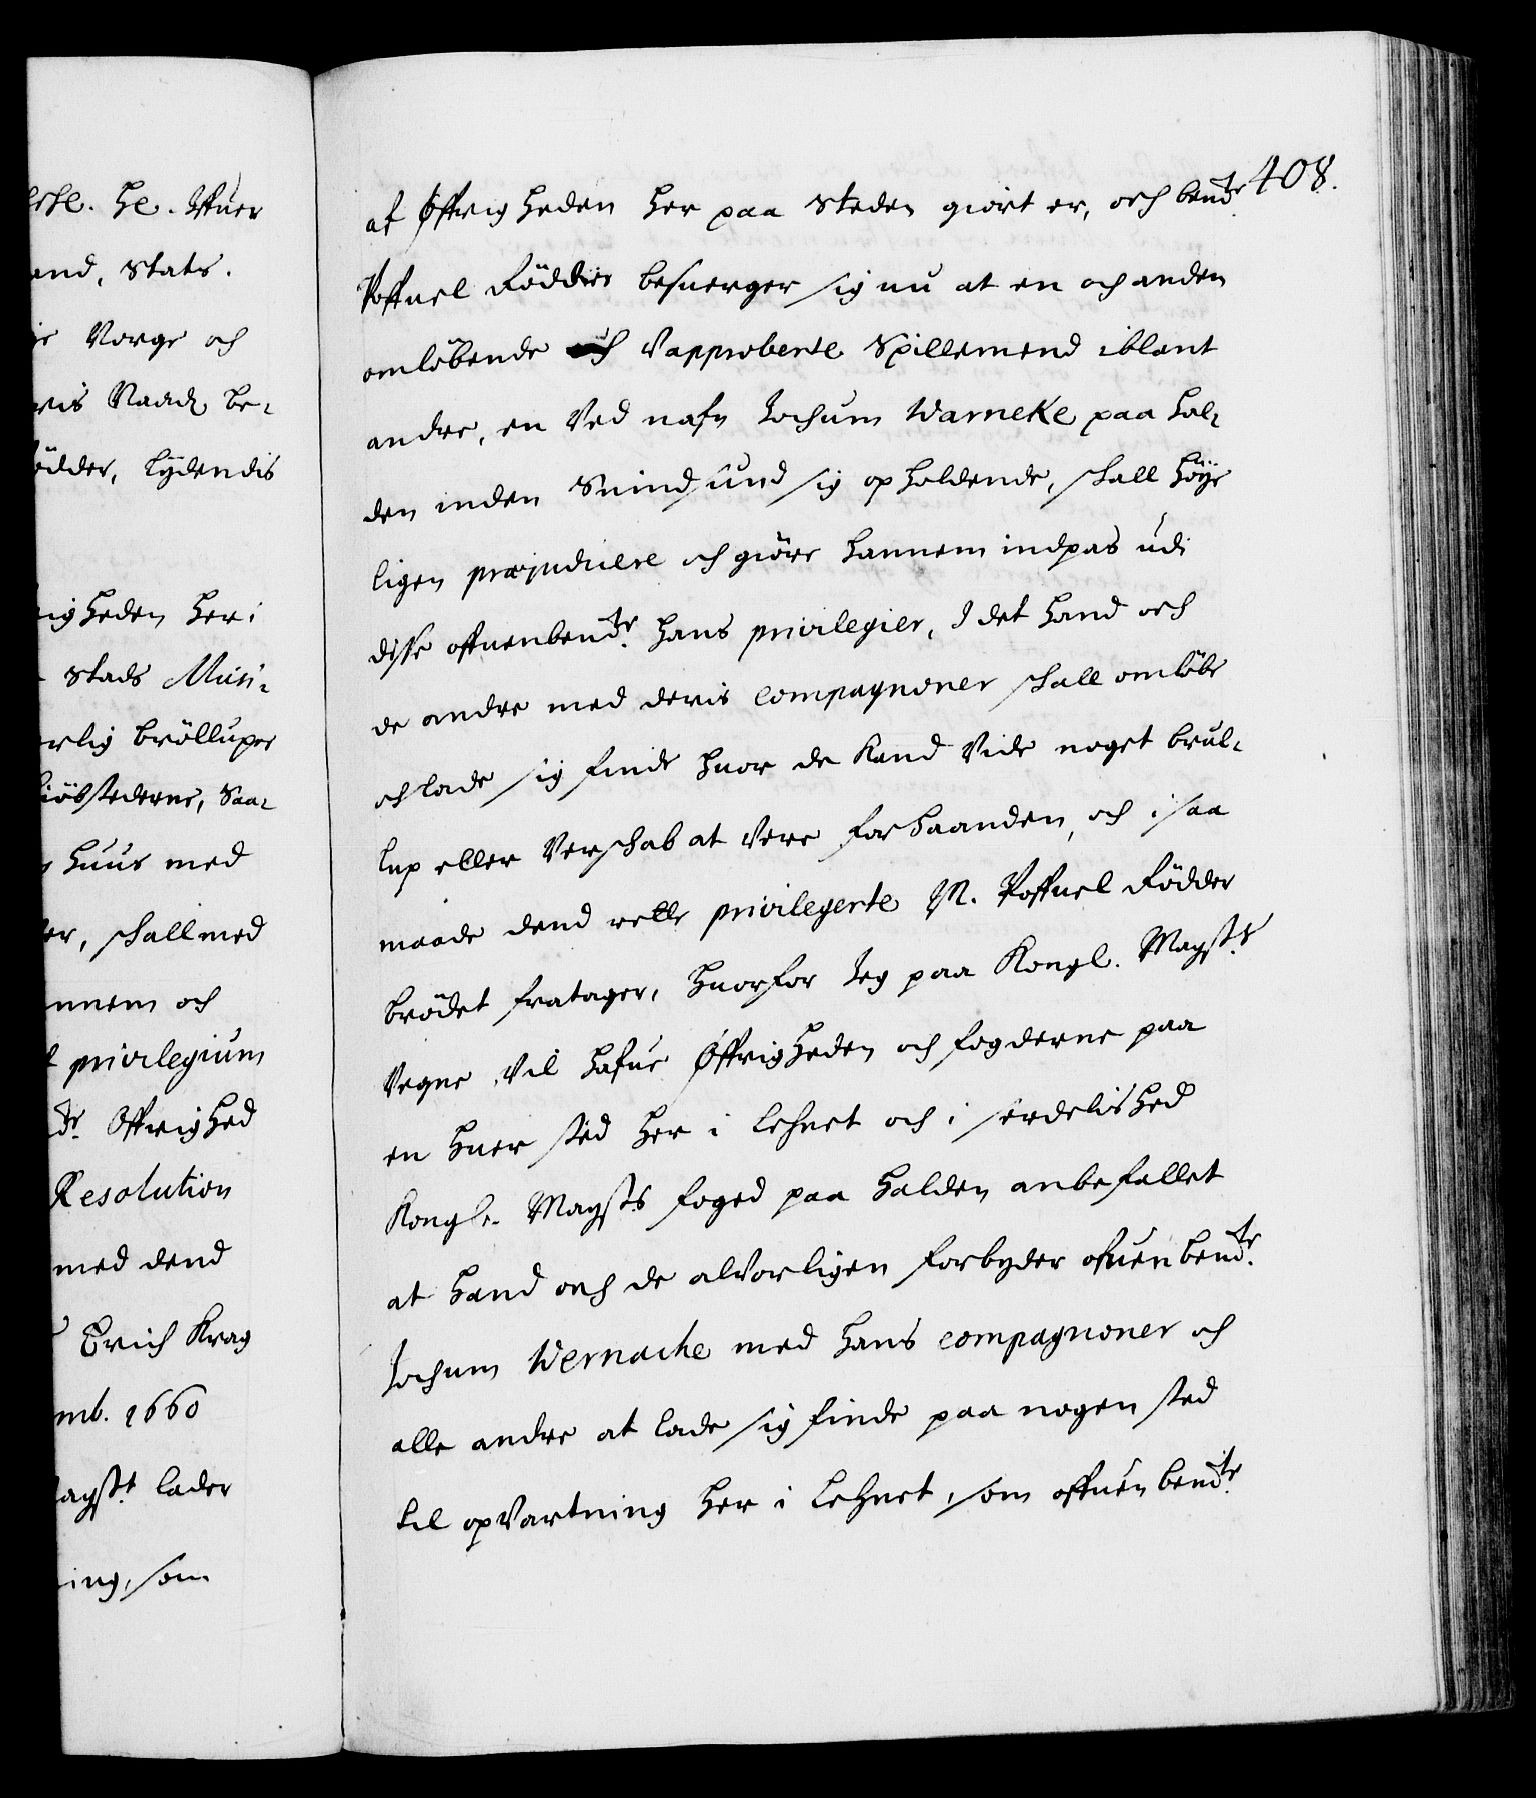 erhl. He. Ifuer
and, Stats.
je Norge och
ris Raad, be-
ödder, lydendis
righeden her i
Stads Musi-
erlig brölluper
kiöbstederne, Saa-
huus med
er, schall med
annem och
privilegium
dte. Öffrighed
Resolution
med dend
Erich Krag
mb. 1660
Mayst. lader
ning, som
408.
af Öffrigheden her paa Steden giort er, och bemdte.
Poffuel Rödder besuerger sig nu at en och anden
omlöbende och Vapproberte Spillemend iblant
andre, en Ved nafn Jochum Warneke paa Hal-
den inden Suindsund sig opholdende, schall höÿe
ligen præjudicere och giöre hannem indpas udi
disse offuenbemdte. hans privilegier, I det hand och
de andre med deris Compagnoner schall omlöbe
och lade sig finde huor de Kand Vide noget bröl-
lup eller Verschab at Vere forhaanden, och i saa
maade dend rette privilegerte M. Poffuel Rödder
brödet fratager, huorfor Jeg paa Kongl. Mayst.s
Vegne Vil hafue Öffrigheden och fogderne paa
en huer sted her i Lehnet och i serdelished
Kongl. Maysts. foged paa Halden anbefallet
at hand och de alvorligen forbyder ofuenbemdte.
Jochum Wernache med hans Compagnoner och
alle andre at lade sig finde paa nogen sted
til opVartning her i Lehnet, som offuenbemdte.